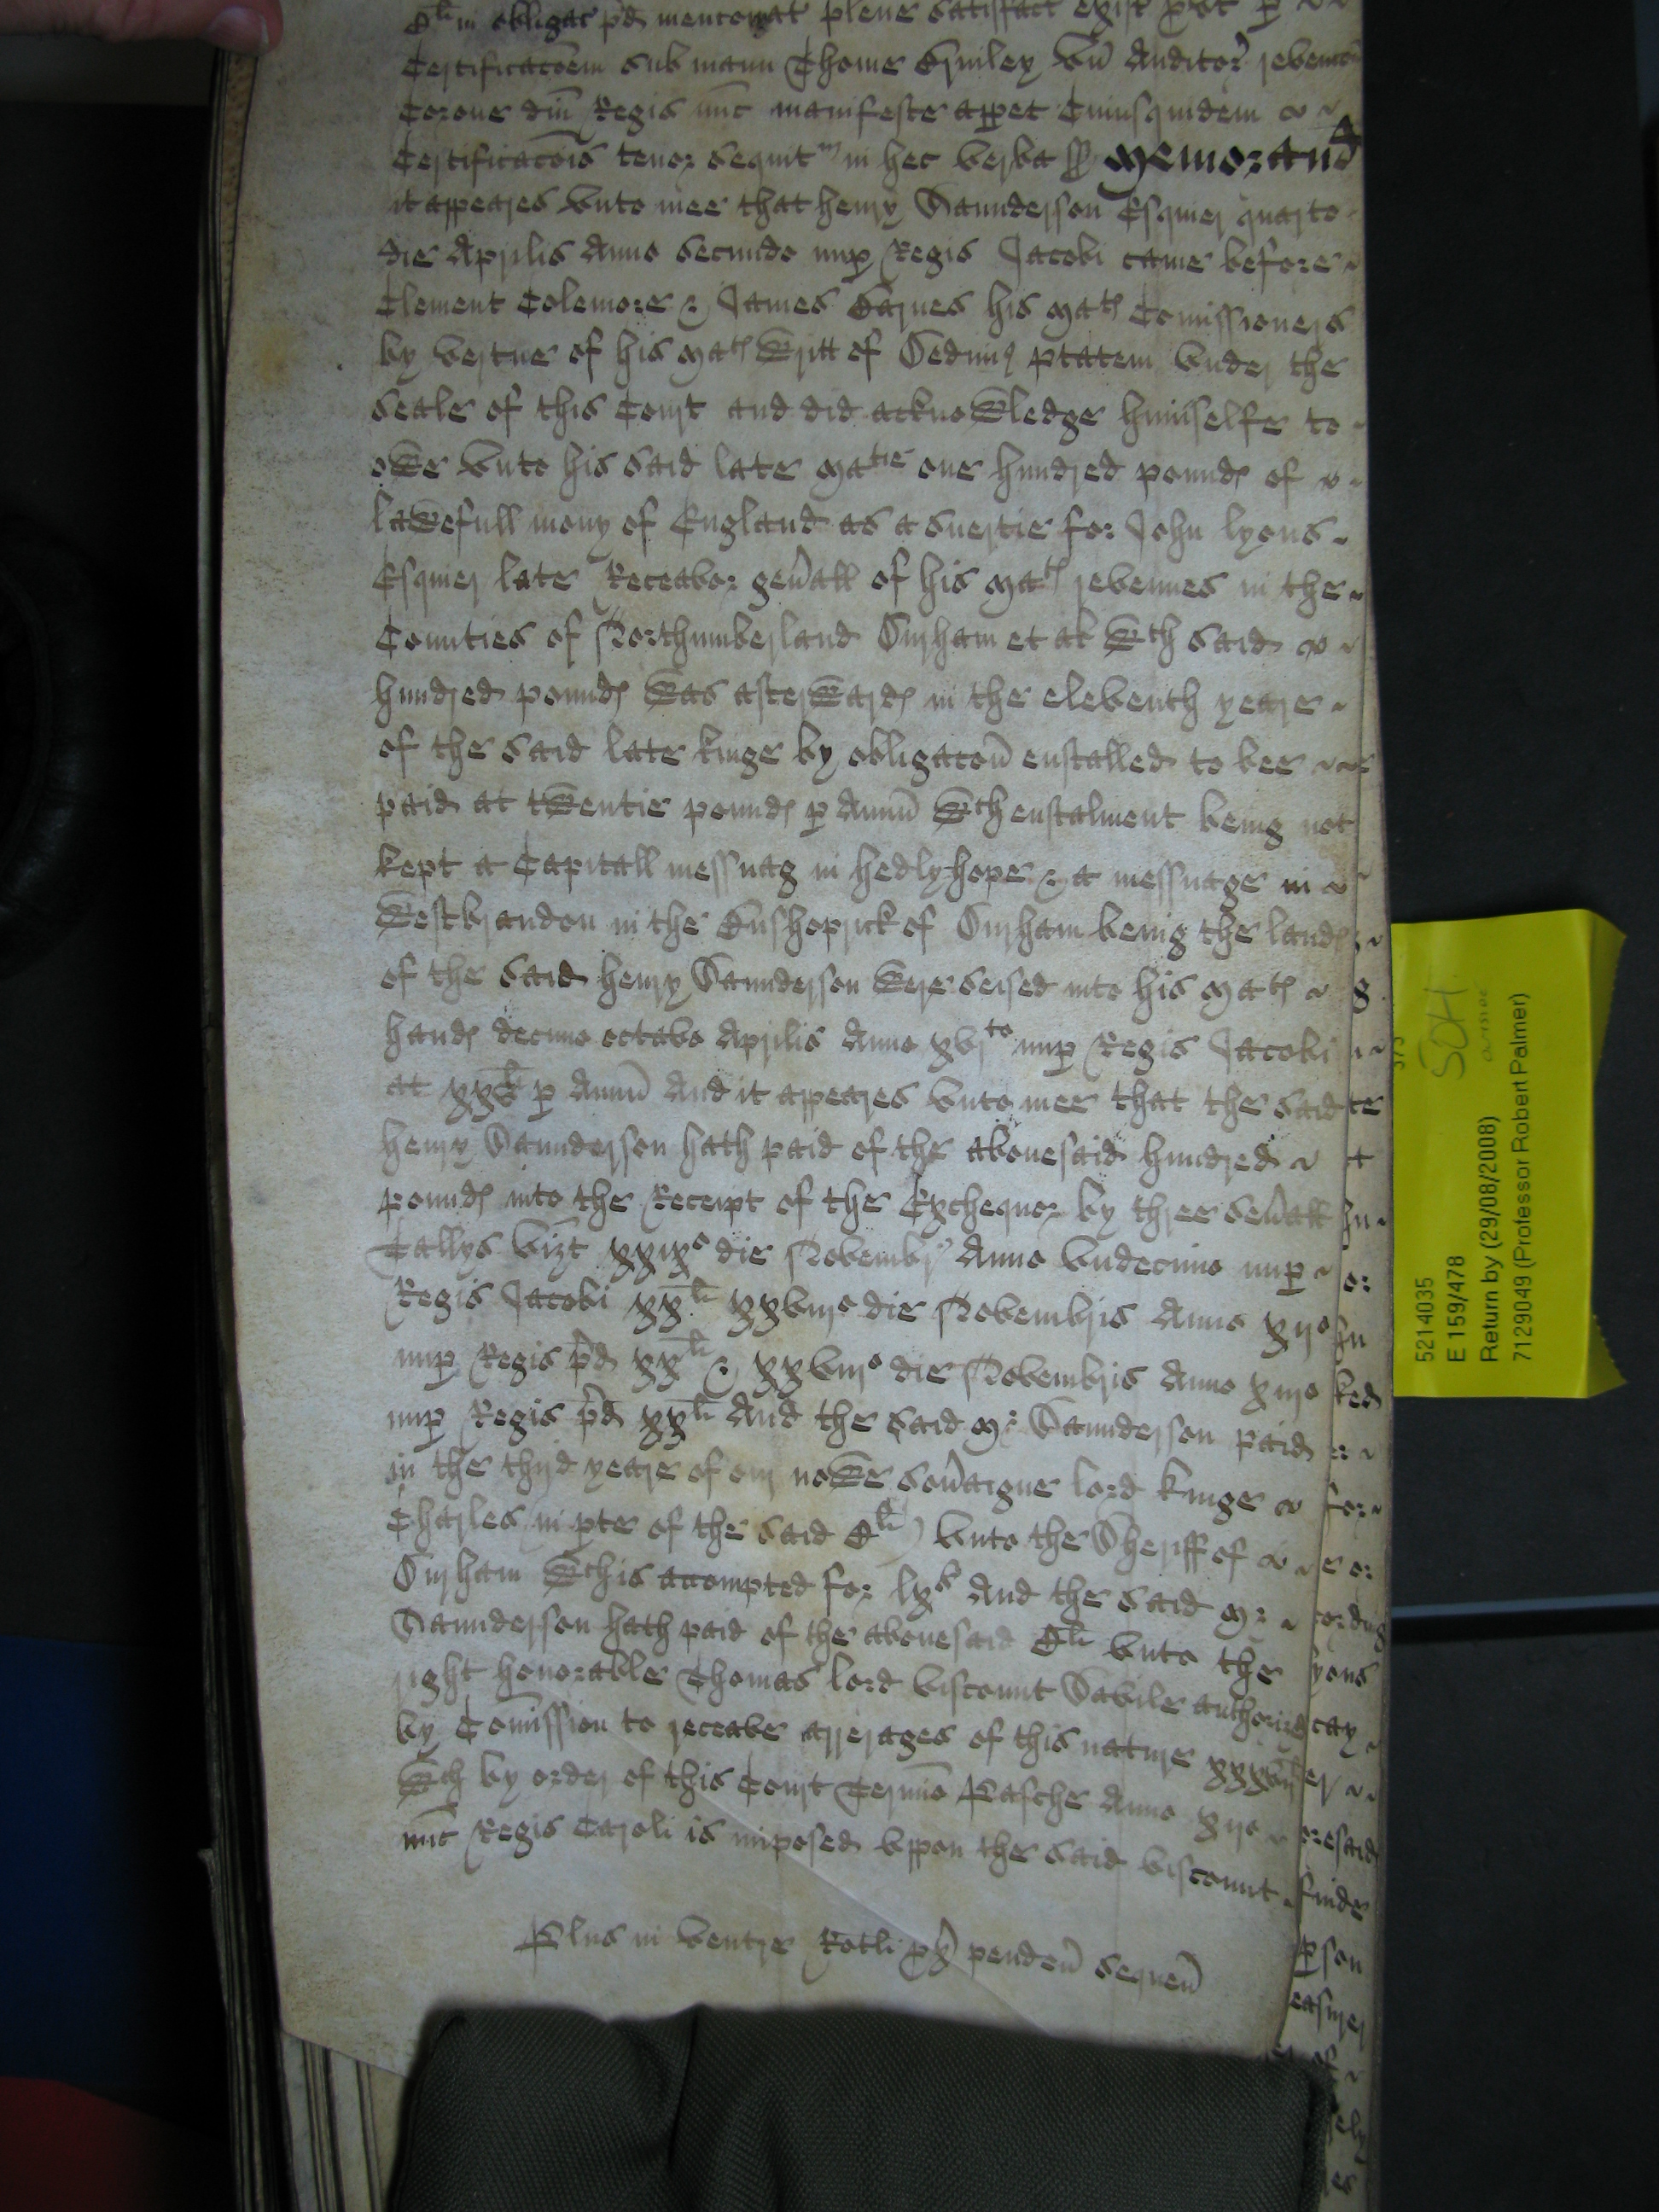 Cli in obligac p̄d menconat plene satisfact exist put p
Certificacōem sub manu Thome Brinley un Auditor revencōn
Corone dni Regis nūc manifeste apparet Cuiusquidem
Certificacōis tenor sequit in hec verba ss Memorand
it appeares vnto mee that henry Saunderson Esquier quarto
die Aprilis Anno secundo nup Regis Jacobi came before
Clement Colemore & James Barnes his Mats Comissioners
by vertue of his Mats Writt of Dedimus ptatem vnder the
seale of this Court and did acknowledge himselfe to
owe vnto his said late Matie one hundred pounds of
lawefull mony of England as a suertie for John lyons
Esquier late Receavor gen̄all of his Mats revenues in the
Counties of Northumberland Durham et al wch said
hundred pounds was afterwards in the eleventh yeare
of the said late kinge by obligacōn enstalled to bee
paid at twentie pounds p Annū wch enstalment being not
kept a Capitall messuag in hedlyhope & a messuage in
Westbrandon in the Bushoprick of Durham being the lands
of the said henry Saunderson were seised into his Mats
hands decimo octavo Aprilis Anno xvjto nup Regis Jacobi
at xxs p Annū And it apeares vnto mee that the said
henry Saunderson hath paid of the abouesaid hundred
pounds into the Receipt of the Exchequor by three sev̄all
Tallys vizt xxixo die Novembr Anno vndecimo nup
Regis Jacobi xxli xxviijo die Novembris Anno xijo
nup Regis p̄d xxli & xxviijo die Novembris Anno xiijo
nup Regis p̄d xxli And the said Mr Saunderson paid
in the third yeare of our nowe sov̄aigne lord kinge
Charles in pte of the said Cli) vnto the Sheriff of
Durham wch is accompted for lxs And the said Mr
Saunderson hath paid of the abouesaid Cli vnto the
right honorable Thomas lord viscount Savile authorized
by Comission to receave arrerages of this nature xxxvijli
wch by order of this Court Termīo Pasche Anno xijo
nūc Regis Caroli is imposed vppon the said viscount
Plus in ventre Rotli px̄ penden̄ sequen̄
5214035
E 159/478
Return by (29/08/2008)
7129049 (Professor Robert Palmer)